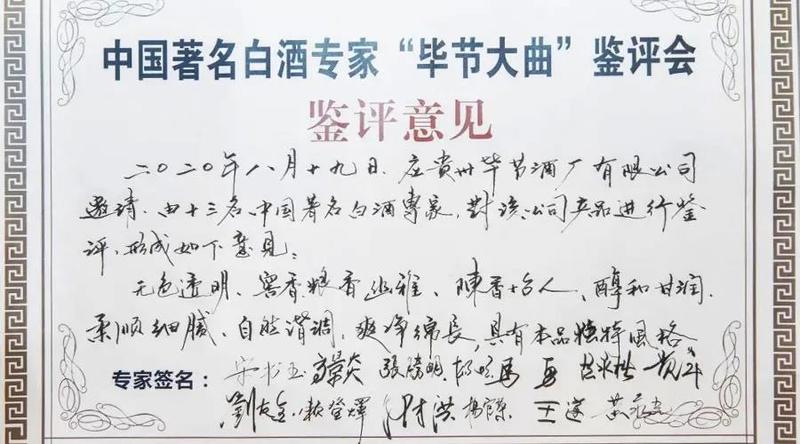 中国著名白酒专家“毕节大曲”鉴评会
鉴评意见
二〇二〇年八月十九日.应貴州毕节酒厂有限公司
邀请.由十三名中国著名白酒專家,对该公司产品进行鉴
评,形成如下意見:
无色透明、窖香粮香幽雅、陳香怡人、醇和甘润、
柔顺细腻、自然谐调、爽净绵長,具有本品独特風格
专家签名: 宋书玉 張 明
劉 王